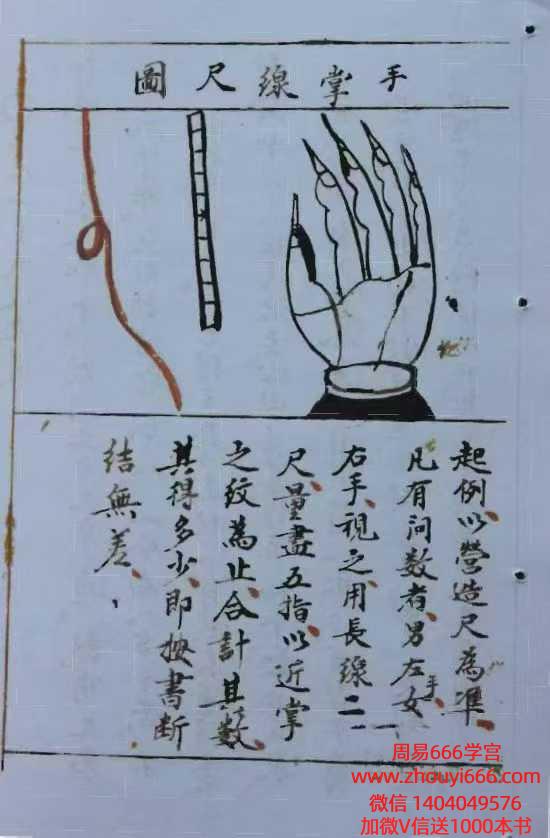 手掌線尺圖
起例、以營造尺為準、
凡有问数者、男左手、女
右手、視之、用長線二
尺、量盡五指、以近掌
之紋為止、合計其数、
其得多少、即按書断
結無差、
周易666学宫
www.zhouyi666.com
微信 1404049576
加微V信送1000本书